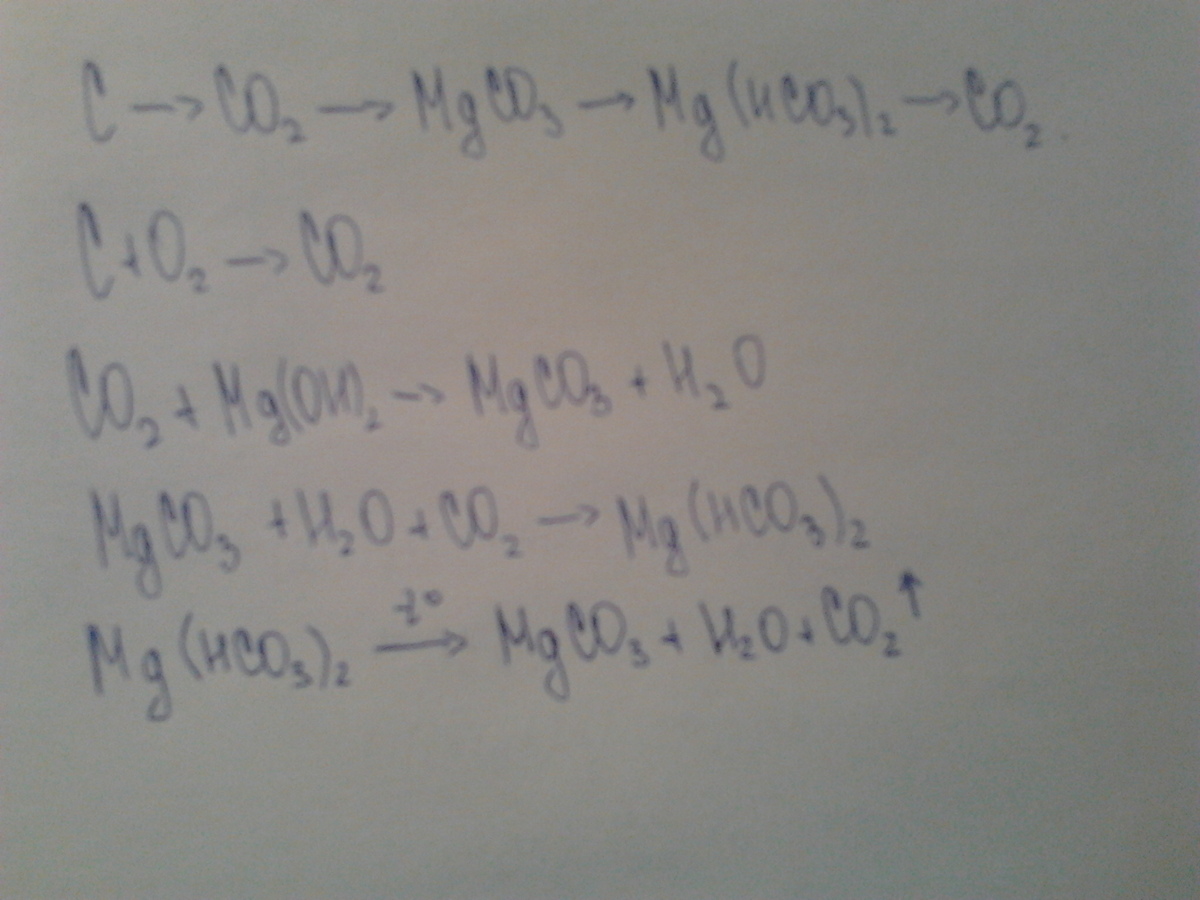 C → CO₂ → MgCO₃ → Mg(HCO₃)₂ → CO₂.
C + O₂ → CO₂
CO₂ + Mg(OH)₂ → MgCO₃ + H₂O
MgCO₃ + H₂O + CO₂ → Mg(HCO₃)₂
Mg(HCO₃)₂ —t°→ MgCO₃ + H₂O + CO₂↑